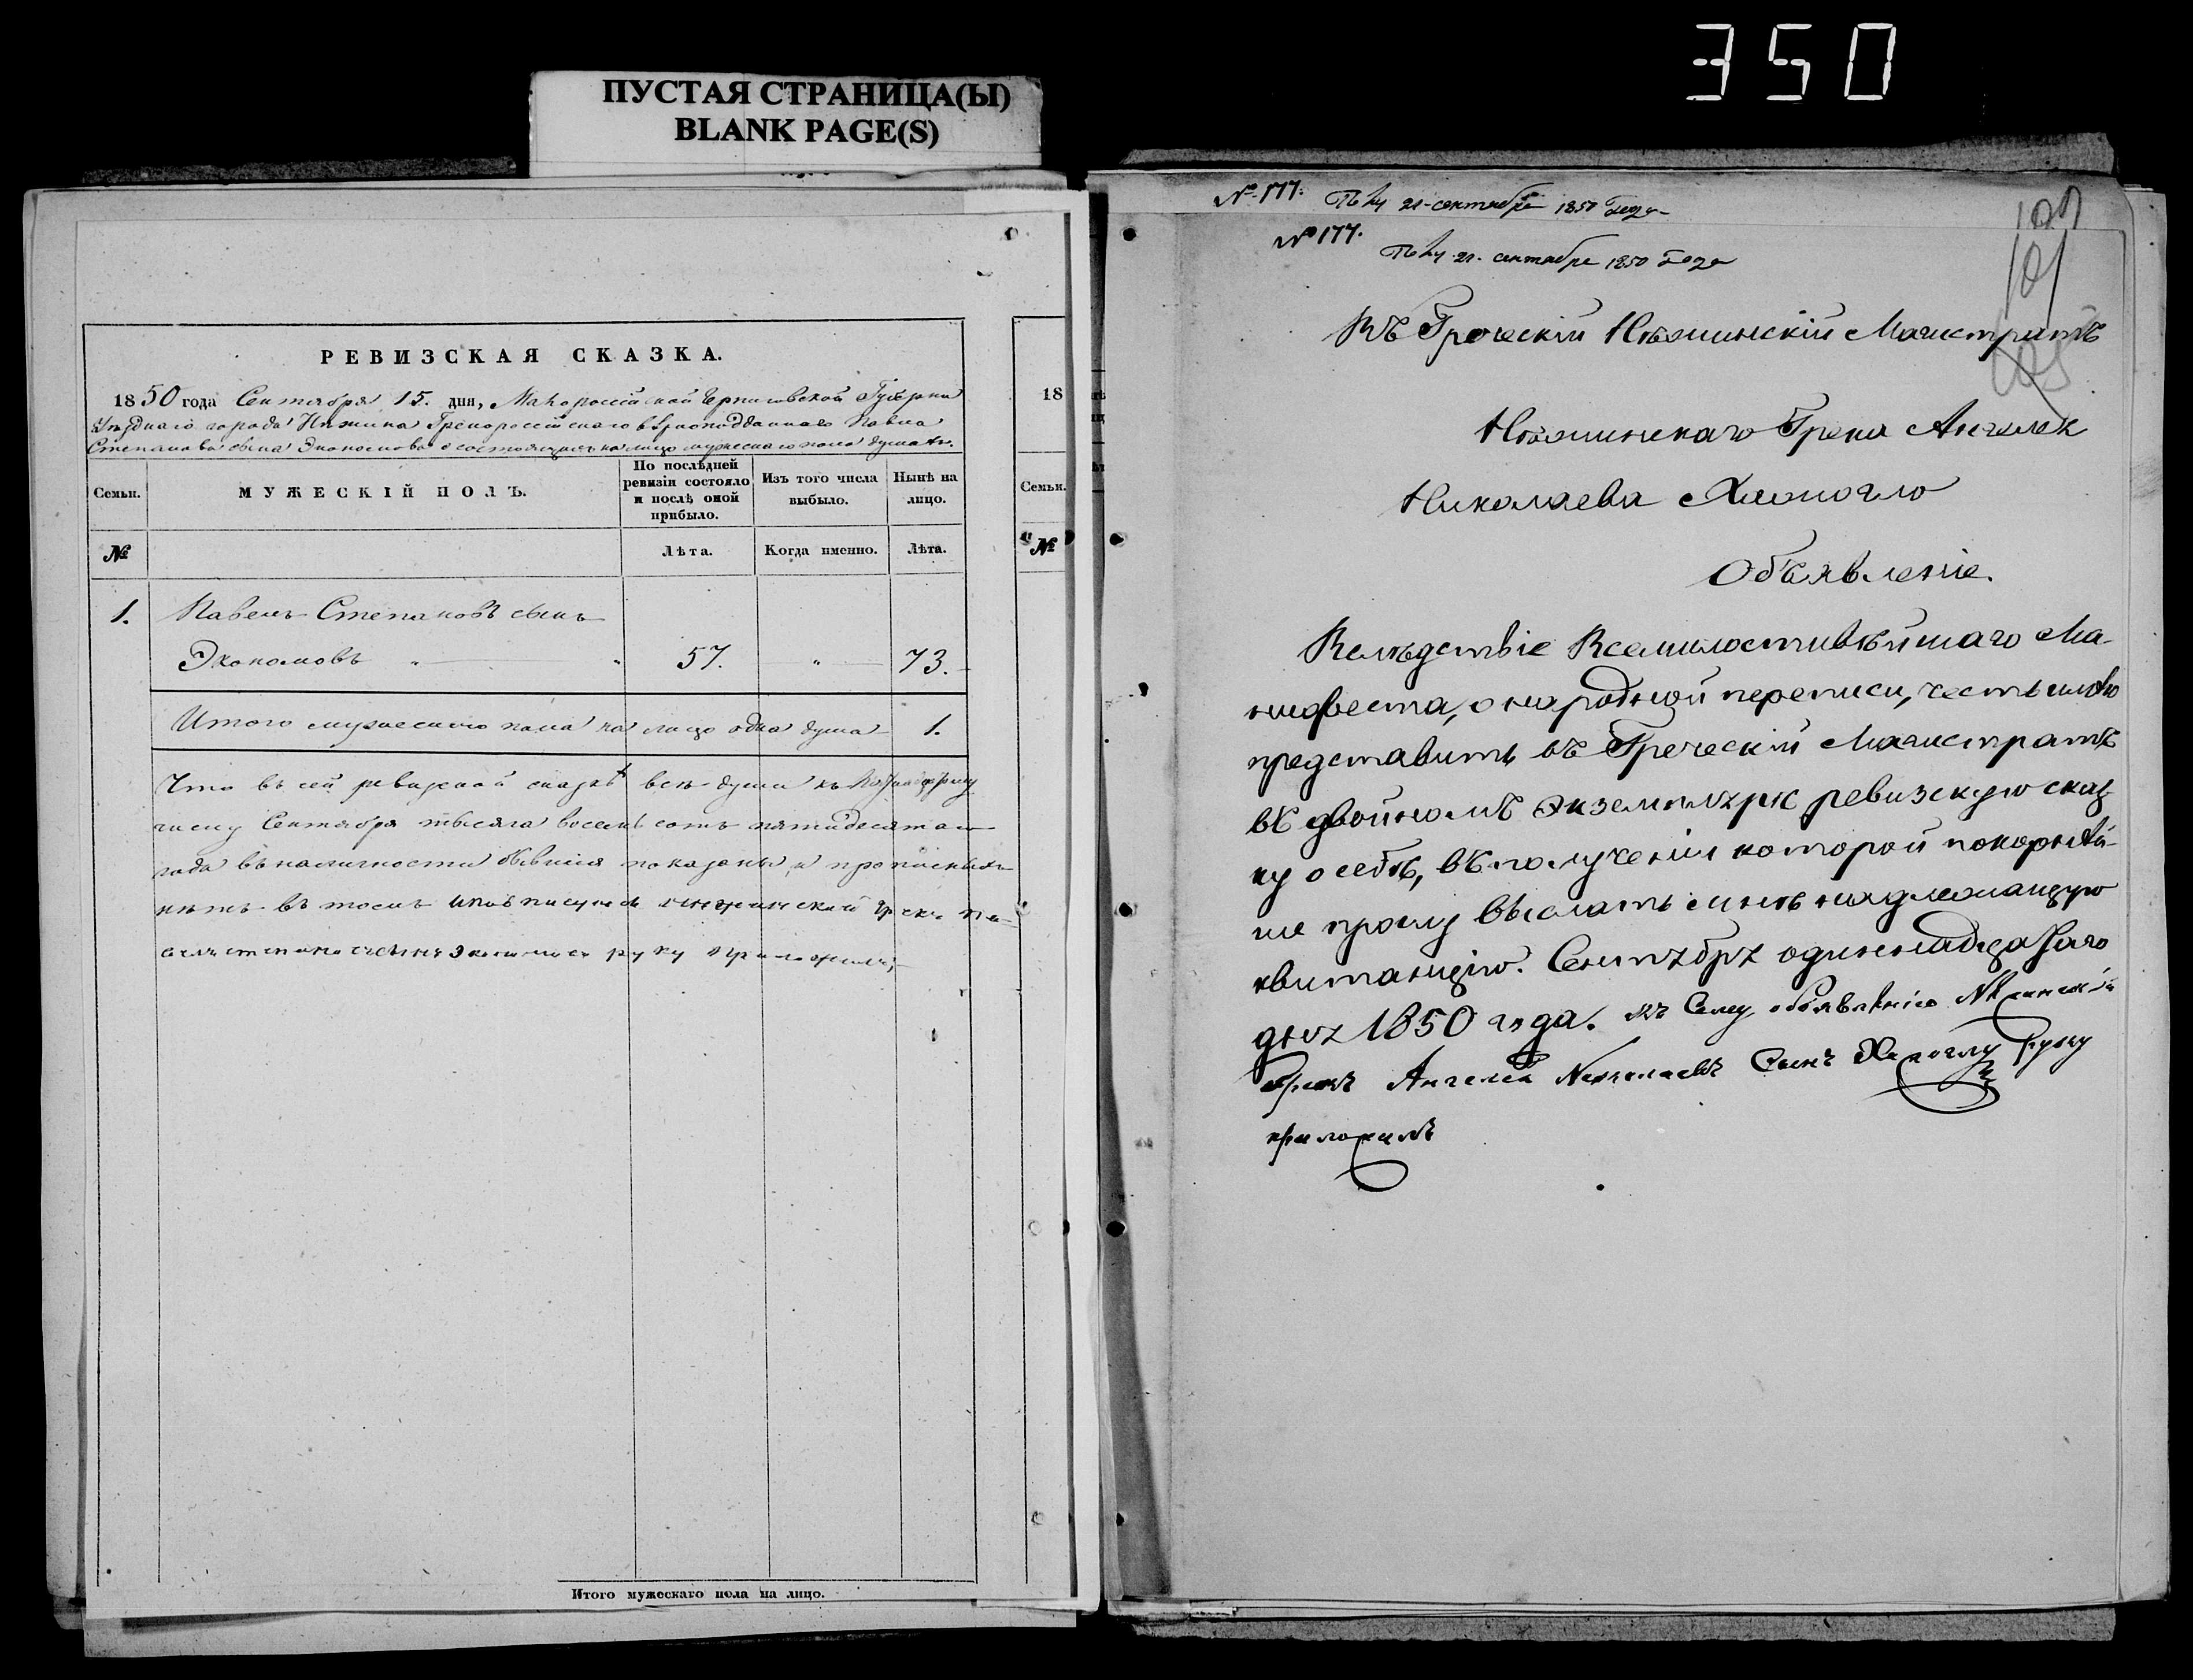 350
ПУСТАЯ СТРАНИЦА(Ы)
BLANK PAGE(S)
РЕВИЗСКАЯ СКАЗКА.
1850 года Сентября 15. дня, Малороссійской Черниговской Губерніи
Уѣзднаго города Нѣжина Грекороссійскаго вѣрноподданнаго Павла
Степанова сына Экономова о состоящихъ на лицо мужескаго пола душахъ.
Семьи.
МУЖЕСКІЙ ПОЛЪ.
По послѣдней ревизіи состояло и послѣ оной прибыло.
Изъ того числа выбыло.
Нынѣ на лицо.
№
Лѣта.
Когда именно.
Лѣта.
1.
Павелъ Степановъ сынъ
Экономовъ " — " 57. " — 73.
Итого мужескаго пола на лицо одна душа 1.
Что въ сей ревизской сказкѣ всѣ души къ
числу Сентября тысяча восемь сотъ пятидесятаго
года въ наличности бывшія показаны, и прописныхъ
нѣтъ въ томъ подписуюсь нежинский грекъ Па-
руку приложилъ
Итого мужескаго пола на лицо.
18
Семьи.
№
№ 177. 21 сентября 1850 года
№ 177.
21. сентября 1850 года
101
Въ Греческій Нѣжинскій Магистратъ
Нѣжинскаго Грека Ангелея
Николаева
Объявленіе.
Вслѣдствіе Всемилостивѣйшаго Ма-
нифеста, о народной переписи, честь имѣю
представить въ Греческій Магистратъ
въ двойномъ экземплярѣ ревизскую сказ
ку о себѣ, въ полученіи которой покорнѣй-
ше прошу выслать мнѣ надлежащую
квитанцію. Сентября одиннадцатаго
дня 1850 года. къ сему объявленію Нѣжинскій
Грекъ Ангелей Николаевъ Сынъ руку
приложилъ